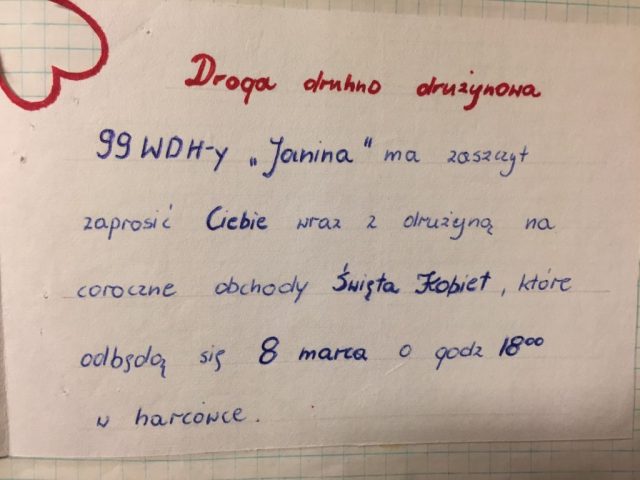 Droga druhno drużynowa
99 WDH-y „Janina" ma zaszczyt
zaprosić Ciebie wraz z drużyną na
coroczne obchody Święta Kobiet, które
odbędą się 8 marca o godz 18⁰⁰
w harcówce.